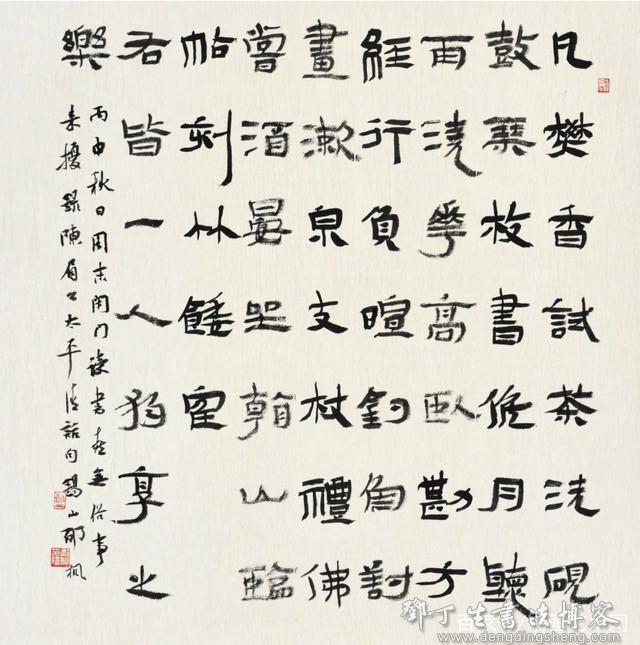 凡樊香試茶洗硯
鼓琴校書候月聽
雨澆華高臥勘方
經行負暄釣魚對
畫漱泉支杖禮佛
嘗酒晏坐看山臨
帖刻竹餧鶴
右皆一人獨享之
樂
丙申秋日周末閉門讀書喜無俗事
來擾錄陳眉公太平清話句錫山
鄧丁生書法博客
www.dengdingsheng.com